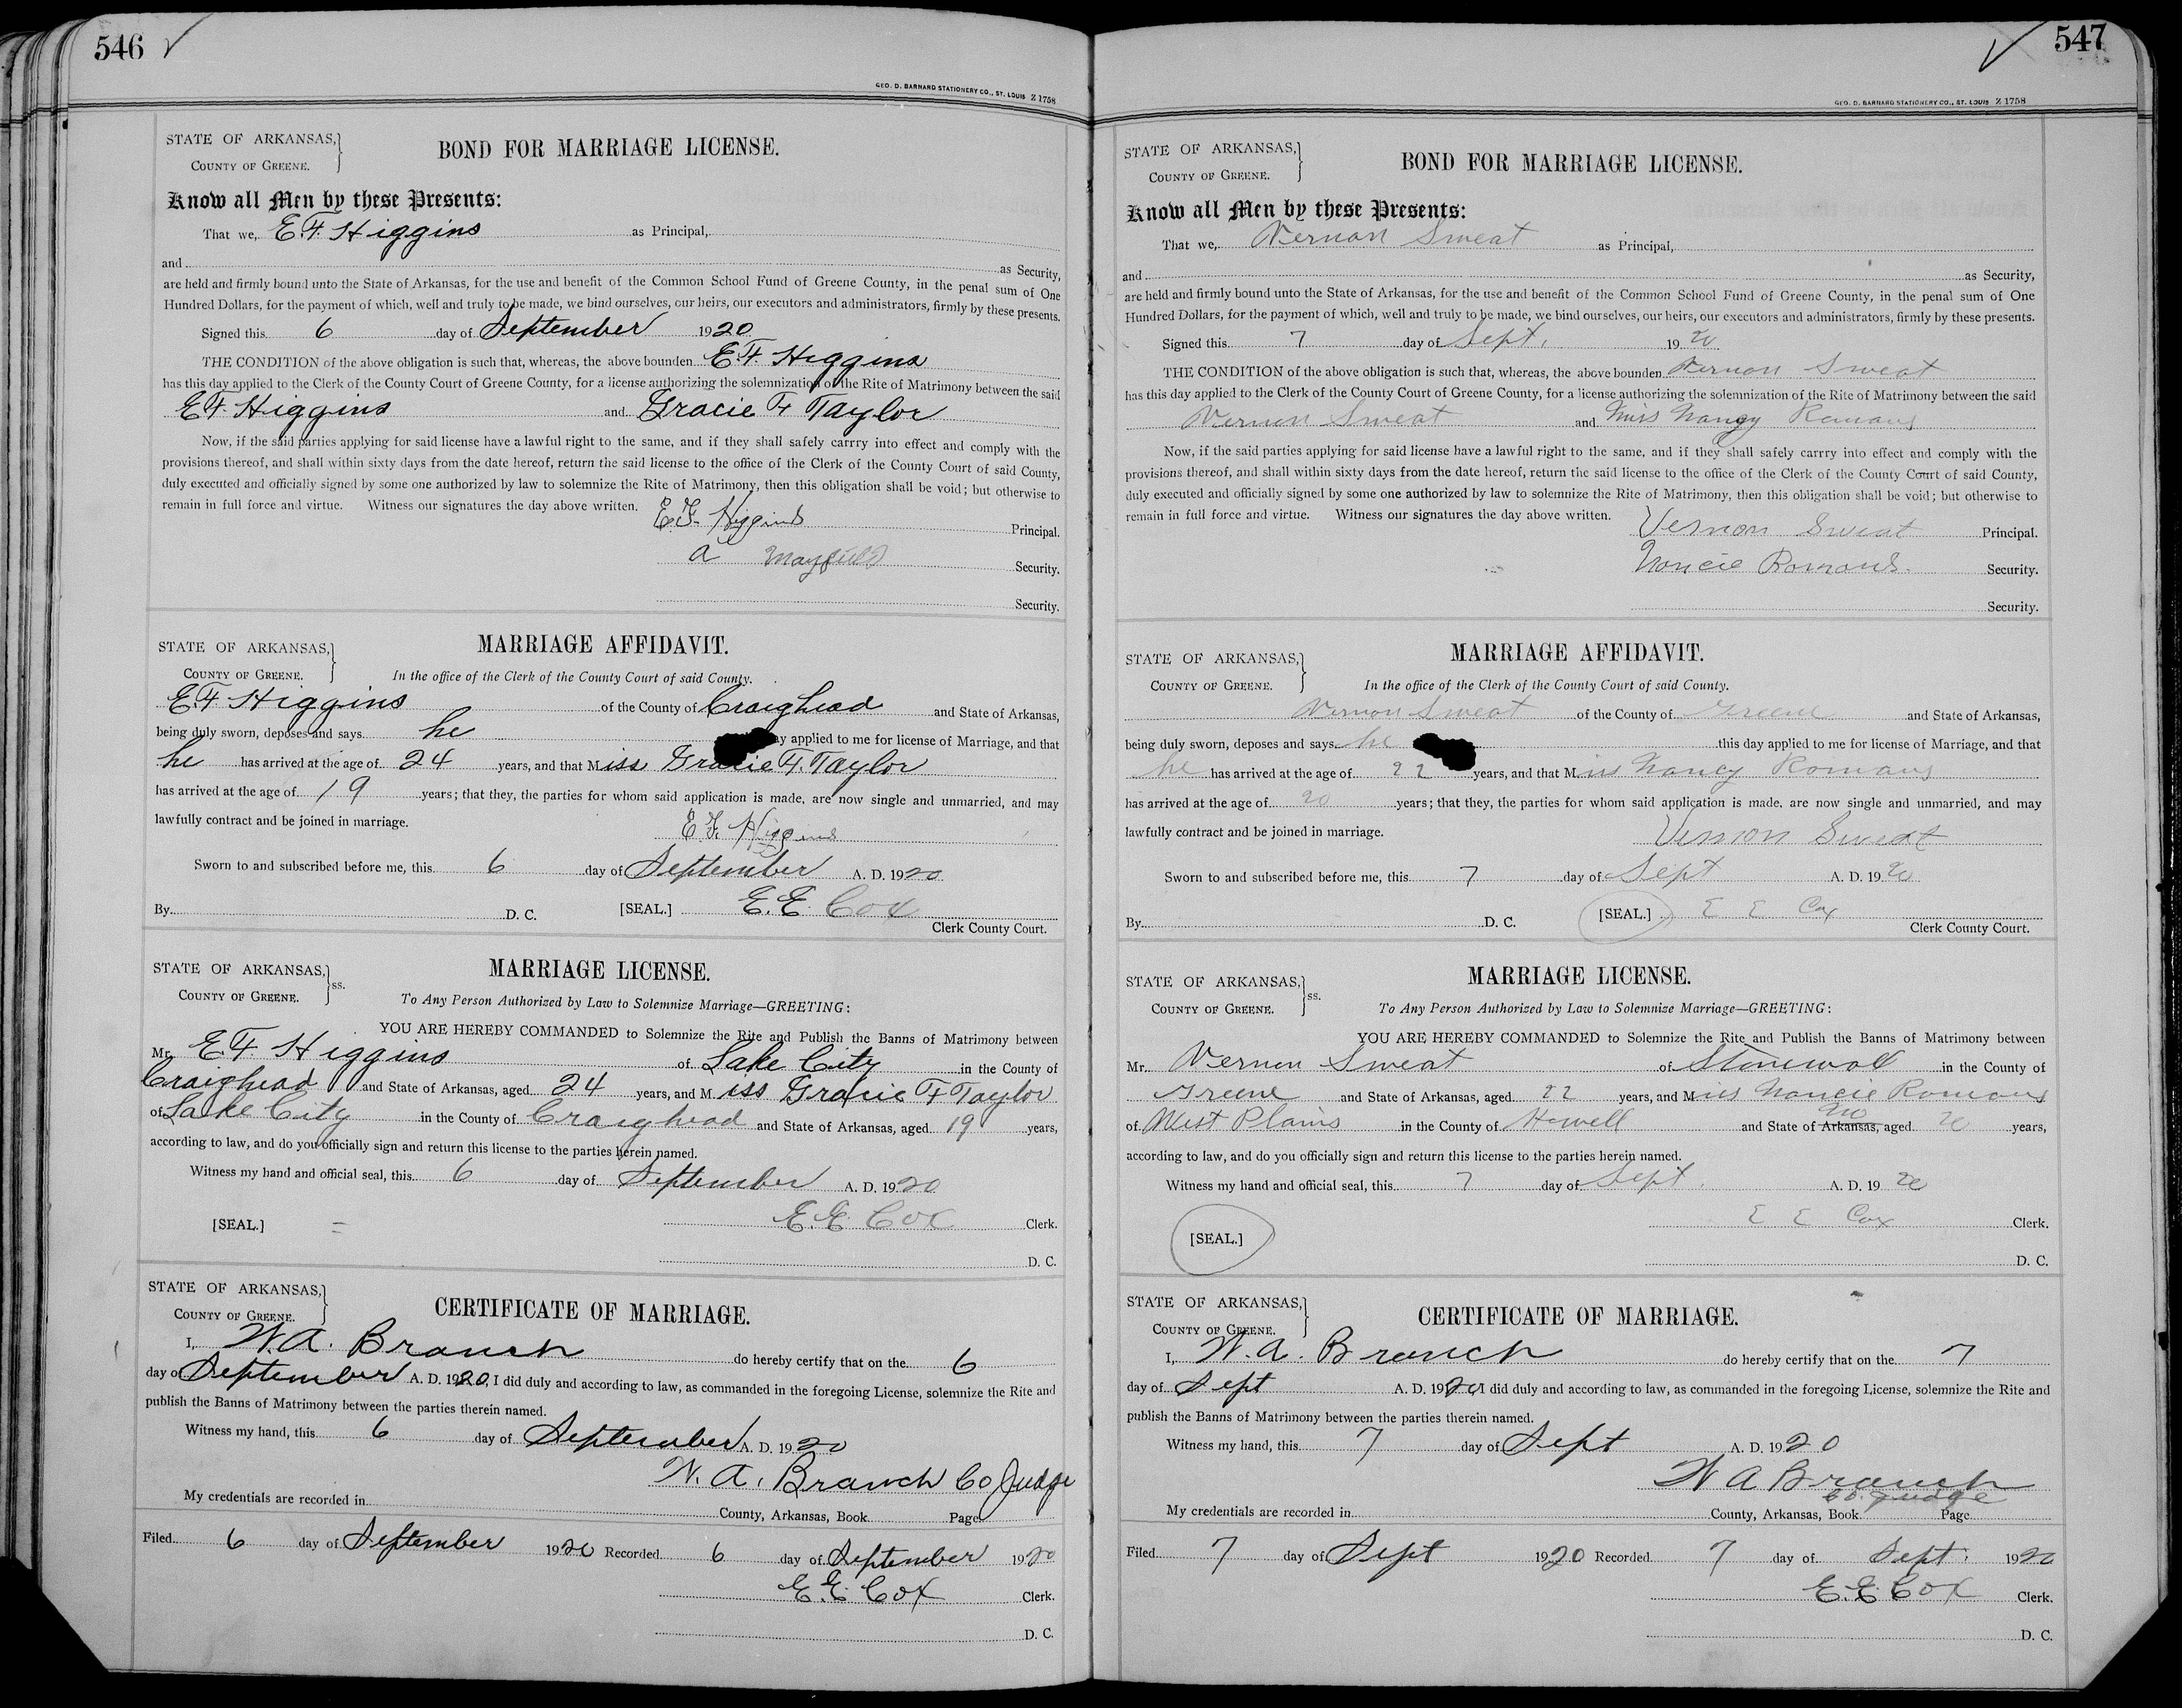 546
GEO. D. BARNARD STATIONERY CO., ST. LOUIS Z 1758
STATE OF ARKANSAS,
COUNTY OF GREENE.
BOND FOR MARRIAGE LICENSE.
Know all Men by these Presents:
That we, E.F. Higgins as Principal,
and as Security,
are held and firmly bound unto the State of Arkansas, for the use and benefit of the Common School Fund of Greene County, in the penal sum of One
Hundred Dollars, for the payment of which, well and truly to be made, we bind ourselves, our heirs, our executors and administrators, firmly by these presents.
Signed this 6 day of September 1920
THE CONDITION of the above obligation is such that, whereas, the above bounden E.F. Higgins
has this day applied to the Clerk of the County Court of Greene County, for a license authorizing the solemnization of the Rite of Matrimony between the said
E.F. Higgins and Gracie F Taylor
Now, if the said parties applying for said license have a lawful right to the same, and if they shall safely carrry into effect and comply with the
provisions thereof, and shall within sixty days from the date hereof, return the said license to the office of the Clerk of the County Court of said County,
duly executed and officially signed by some one authorized by law to solemnize the Rite of Matrimony, then this obligation shall be void; but otherwise to
remain in full force and virtue. Witness our signatures the day above written. E.F. Higgins Principal.
a Mayfield Security.
Security.
STATE OF ARKANSAS,
COUNTY OF GREENE.
MARRIAGE AFFIDAVIT.
In the office of the Clerk of the County Court of said County.
E.F. Higgins of the County of Craighead and State of Arkansas,
being duly sworn, deposes and says he ay applied to me for license of Marriage, and that
he has arrived at the age of 24 years, and that Miss Gracie F. Taylor
has arrived at the age of 19 years; that they, the parties for whom said application is made, are now single and unmarried, and may
lawfully contract and be joined in marriage.
E.F. Higgins
Sworn to and subscribed before me, this 6 day of September A. D. 1920
By D. C. [SEAL.] E.E. Cox
Clerk County Court.
STATE OF ARKANSAS,
COUNTY OF GREENE. ss.
MARRIAGE LICENSE.
To Any Person Authorized by Law to Solemnize Marriage—GREETING:
YOU ARE HEREBY COMMANDED to Solemnize the Rite and Publish the Banns of Matrimony between
Mr. E.F. Higgins of Lake City in the County of
Craighead and State of Arkansas, aged 24 years, and Miss Gracie F Taylor
of Lake City in the County of Craighead and State of Arkansas, aged 19 years,
according to law, and do you officially sign and return this license to the parties herein named.
Witness my hand and official seal, this 6 day of September A. D. 1920
[SEAL.] E.E. Cox Clerk.
D. C.
STATE OF ARKANSAS,
COUNTY OF GREENE.
CERTIFICATE OF MARRIAGE.
I, W.A. Branch do hereby certify that on the 6
day of September A. D. 1920, I did duly and according to law, as commanded in the foregoing License, solemnize the Rite and
publish the Banns of Matrimony between the parties therein named.
Witness my hand, this 6 day of September A. D. 1920
W. A. Branch Co Judge
My credentials are recorded in County, Arkansas, Book Page
Filed 6 day of September 1920 Recorded 6 day of September 1920
E.E. Cox Clerk.
D. C.
547
GEO. D. BARNARD STATIONERY CO., ST. LOUIS Z 1758
STATE OF ARKANSAS,
COUNTY OF GREENE.
BOND FOR MARRIAGE LICENSE.
Know all Men by these Presents:
That we, Vernon Sweat as Principal,
and as Security,
are held and firmly bound unto the State of Arkansas, for the use and benefit of the Common School Fund of Greene County, in the penal sum of One
Hundred Dollars, for the payment of which, well and truly to be made, we bind ourselves, our heirs, our executors and administrators, firmly by these presents.
Signed this 7 day of Sept. 1920
THE CONDITION of the above obligation is such that, whereas, the above bounden Vernon Sweat
has this day applied to the Clerk of the County Court of Greene County, for a license authorizing the solemnization of the Rite of Matrimony between the said
Vernon Sweat and Miss Nancy Romans
Now, if the said parties applying for said license have a lawful right to the same, and if they shall safely carrry into effect and comply with the
provisions thereof, and shall within sixty days from the date hereof, return the said license to the office of the Clerk of the County Court of said County,
duly executed and officially signed by some one authorized by law to solemnize the Rite of Matrimony, then this obligation shall be void; but otherwise to
remain in full force and virtue. Witness our signatures the day above written. Vernon Sweat Principal.
Nancie Romans. Security.
Security.
STATE OF ARKANSAS,
COUNTY OF GREENE.
MARRIAGE AFFIDAVIT.
In the office of the Clerk of the County Court of said County.
Vernon Sweat of the County of Greene and State of Arkansas,
being duly sworn, deposes and says he this day applied to me for license of Marriage, and that
he has arrived at the age of 22 years, and that Miss Nancy Romans
has arrived at the age of 20 years; that they, the parties for whom said application is made, are now single and unmarried, and may
lawfully contract and be joined in marriage. Vernon Sweat
Sworn to and subscribed before me, this 7 day of Sept A. D. 1920
By D. C. [SEAL.] E E Cox
Clerk County Court.
STATE OF ARKANSAS,
COUNTY OF GREENE. ss.
MARRIAGE LICENSE.
To Any Person Authorized by Law to Solemnize Marriage—GREETING:
YOU ARE HEREBY COMMANDED to Solemnize the Rite and Publish the Banns of Matrimony between
Mr. Vernon Sweat of Stonewall in the County of
Greene and State of Arkansas, aged 22 years, and Miss Nancie Romans
of West Plains in the County of Howell and State of Arkansas, Mo aged 20 years,
according to law, and do you officially sign and return this license to the parties herein named.
Witness my hand and official seal, this 7 day of Sept. A. D. 1920
E E Cox Clerk.
[SEAL.]
D. C.
STATE OF ARKANSAS,
COUNTY OF GREENE.
CERTIFICATE OF MARRIAGE.
I, W.A. Branch do hereby certify that on the 7
day of Sept A. D. 1920 I did duly and according to law, as commanded in the foregoing License, solemnize the Rite and
publish the Banns of Matrimony between the parties therein named.
Witness my hand, this 7 day of Sept A. D. 1920
W A Branch
Co. Judge
My credentials are recorded in County, Arkansas, Book Page
Filed 7 day of Sept 1920 Recorded 7 day of Sept. 1920
E.E Cox Clerk.
D. C.